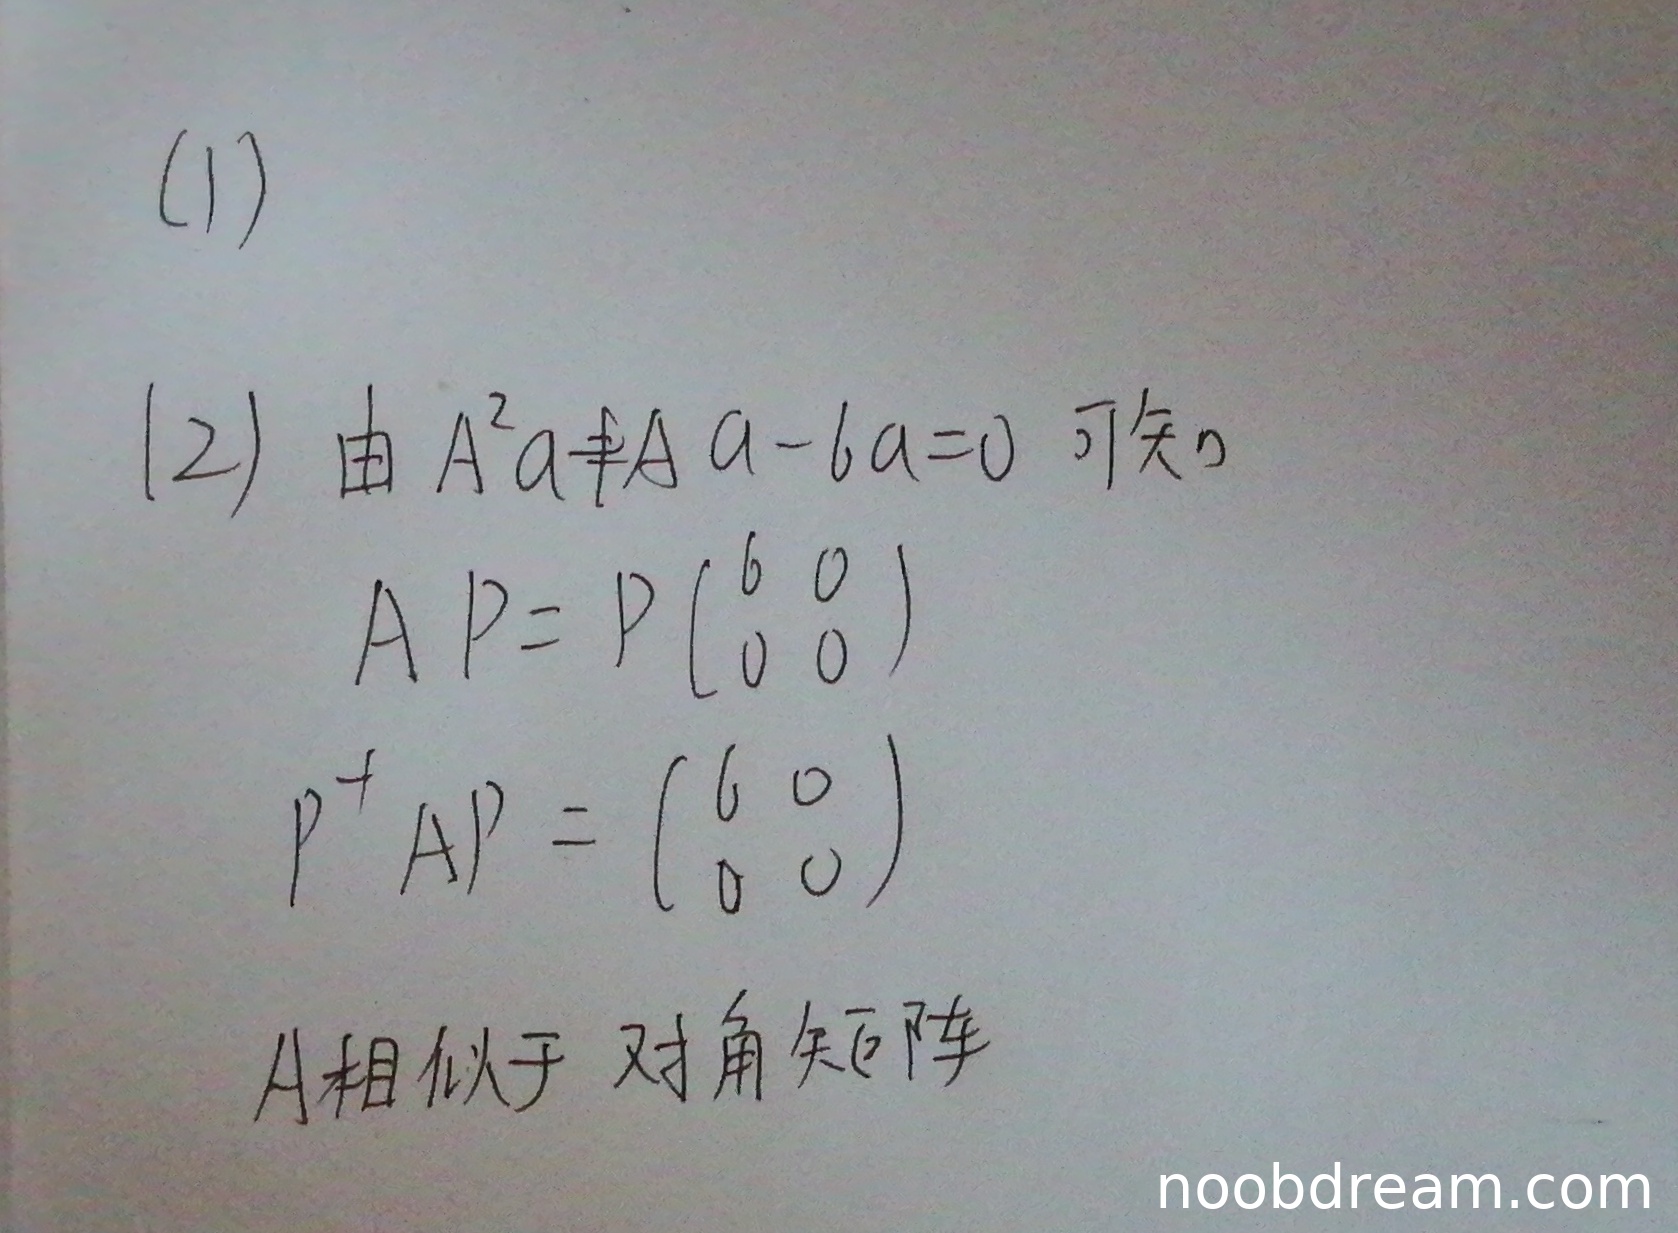 (1)
(2) 由 A²a+Aa-6a=0 可知
AP=P(6 0
0 0)
P⁻¹AP=(6 0
0 0)
A相似于对角矩阵
noobdream.com